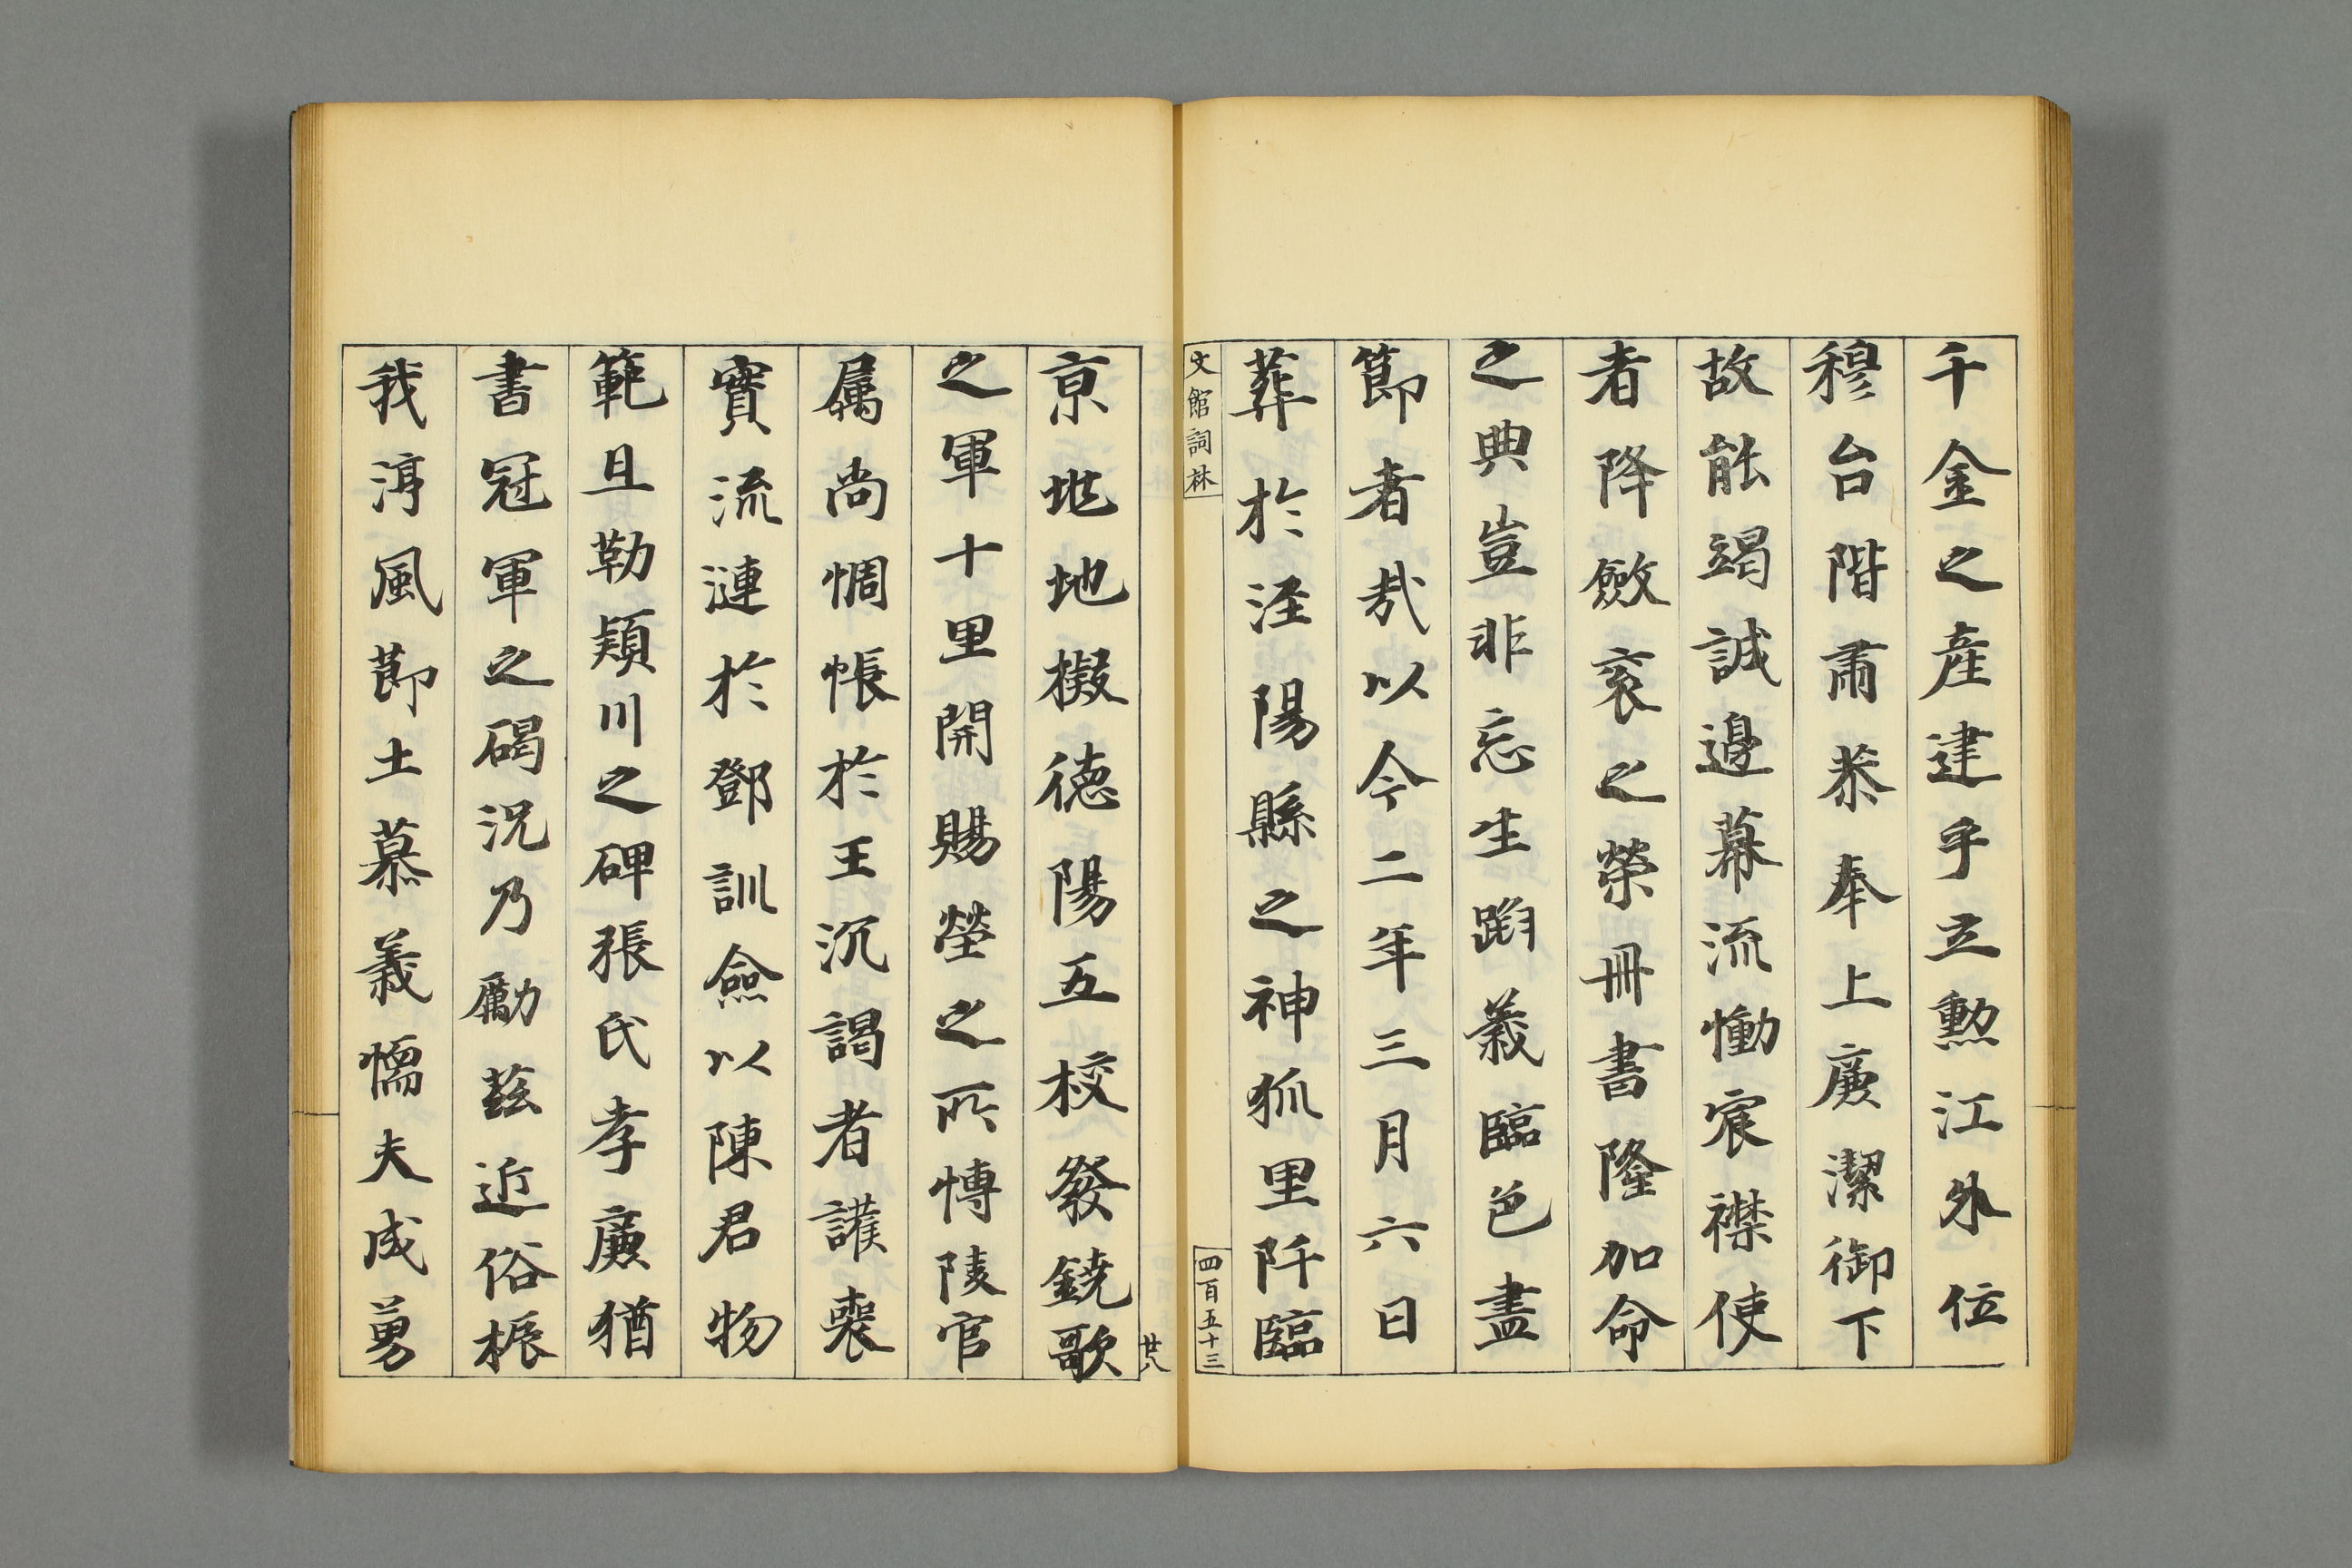 千金之産建乎立勲江外位
穆台階肅恭奉上廉潔御下
故能竭誠邉幕流慟宸襟使
者降斂衮之榮冊書隆加命
之典豈非忘生蹈義臨色盡
節者哉以今二年三月六日
葬於涇陽縣之神狐里阡臨
文館詞林
四百五十三
廿八
京地地擬德陽五校發鐃歌
之軍十里開賜塋之所博陵官
属尚惆悵於王沉謁者護喪
實流漣於鄧訓僉以陳君物
範且勒穎川之碑張氏孝廉猶
書冠軍之碣況乃勵兹近俗振
我淳風節土慕義懦夫成勇